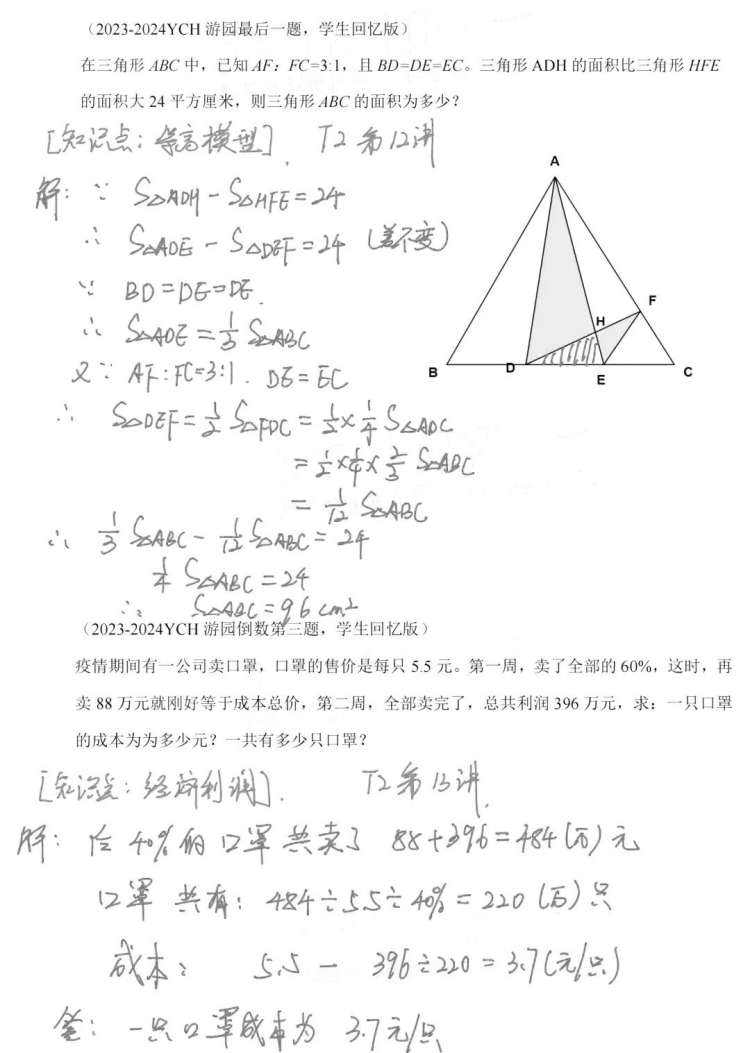 （2023-2024YCH 游园最后一题，学生回忆版）
在三角形 ABC 中，已知 AF：FC=3:1，且 BD=DE=EC。三角形 ADH 的面积比三角形 HFE
的面积大 24 平方厘米，则三角形 ABC 的面积为多少？
[知识点：等高模型]. T2 第12讲
解：∵ S△ADH - S△HFE = 24
∴ S△ADE - S△DEF = 24 (差不变)
∵ BD = DE = DE.
∴ S△ADE = 1/3 S△ABC
又∵ AF:FC=3:1. DE=EC
∴ S△DEF = 1/2 S△FDC = 1/2 × 1/4 S△ADC
= 1/2 × 1/4 × 2/3 S△ABC
= 1/12 S△ABC
∴ 1/3 S△ABC - 1/12 S△ABC = 24
1/4 S△ABC = 24
∴ S△ABC = 96 cm²
A
F
H
B
D
E
C
（2023-2024YCH 游园倒数第三题，学生回忆版）
疫情期间有一公司卖口罩，口罩的售价是每只 5.5 元。第一周，卖了全部的 60%，这时，再
卖 88 万元就刚好等于成本总价，第二周，全部卖完了，总共利润 396 万元，求：一只口罩
的成本为为多少元？一共有多少只口罩？
[知识点：经济利润]. T2 第13讲.
解：后 40% 的口罩共卖了 88+396=484 (万)元
口罩共有：484÷5.5÷40% = 220 (万)只
成本： 5.5 - 396÷220 = 3.7(元/只)
答：一只口罩成本为 3.7元/只